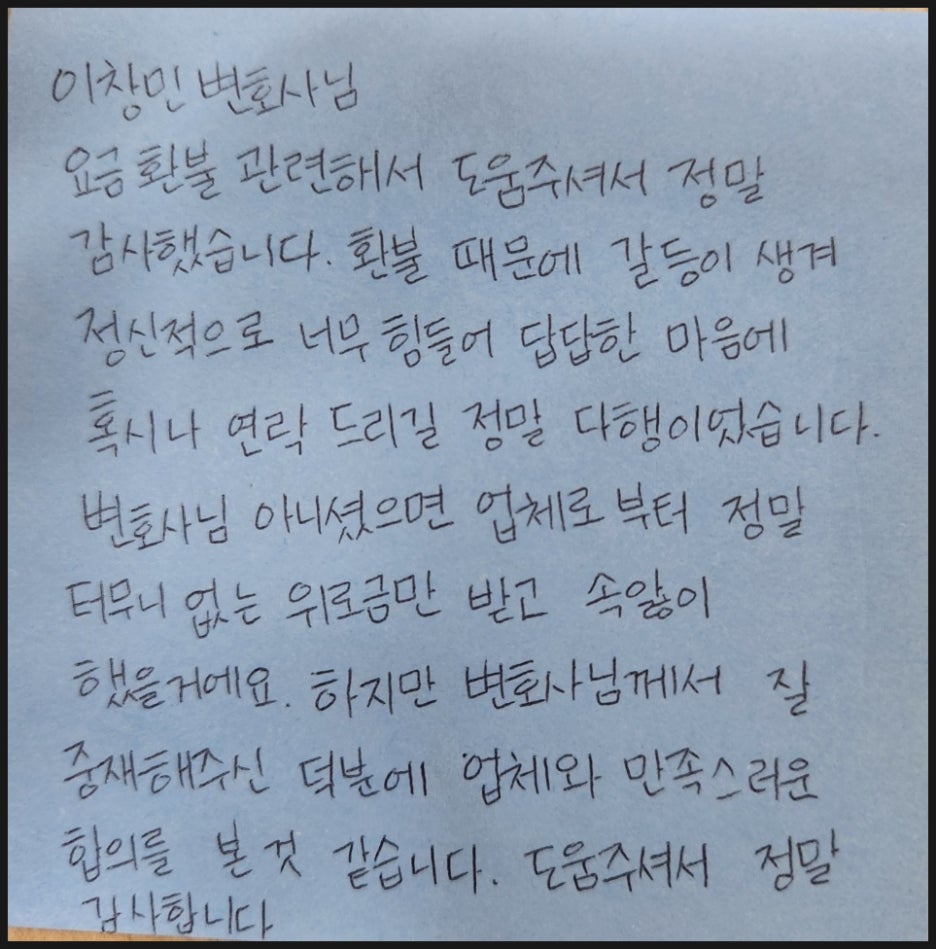 이창민 변호사님
요금 환불 관련해서 도움주셔서 정말
감사했습니다. 환불 때문에 갈등이 생겨
정신적으로 너무 힘들어 답답한 마음에
혹시나 연락 드리길 정말 다행이었습니다.
변호사님 아니셨으면 업체로부터 정말
터무니 없는 위로금만 받고 속앓이
했을거에요. 하지만 변호사님께서 잘
중재해주신 덕분에 업체와 만족스러운
합의를 본 것 같습니다. 도움주셔서 정말
감사합니다